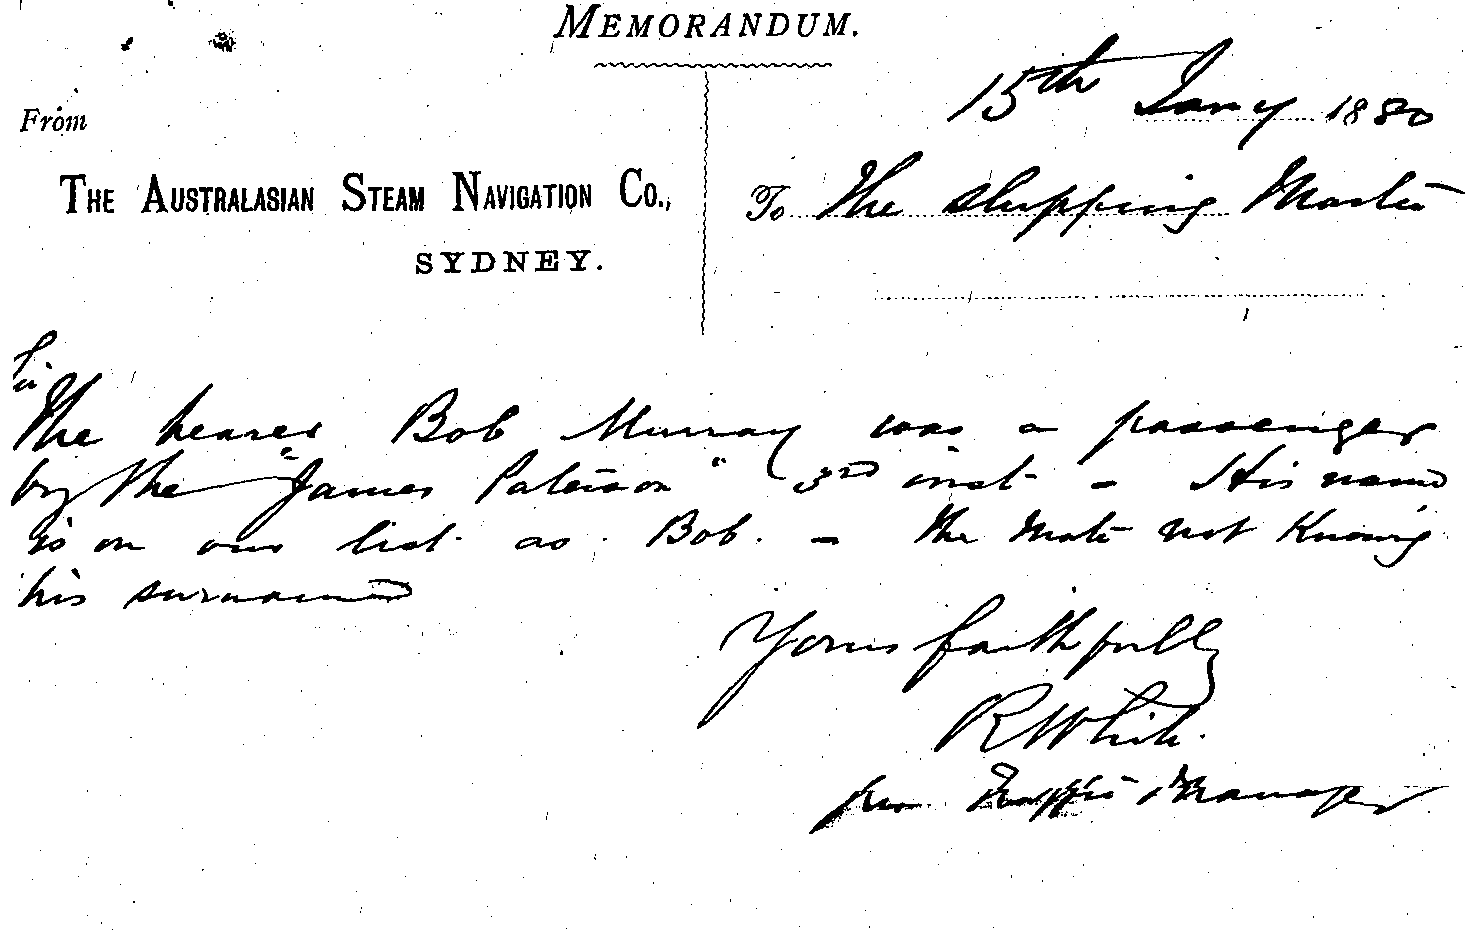 MEMORANDUM.
15th Jany 1880
From
THE AUSTRALASIAN STEAM NAVIGATION CO.,
SYDNEY.
To The Shipping Master
Sir
The bearer Bob Murray was a passenger
by the "James Paterson" 3rd inst - His name
is on our list as Bob. - The Mate not Knowing
his surname
Yours faithfully
R White.
pro Traffic Manager